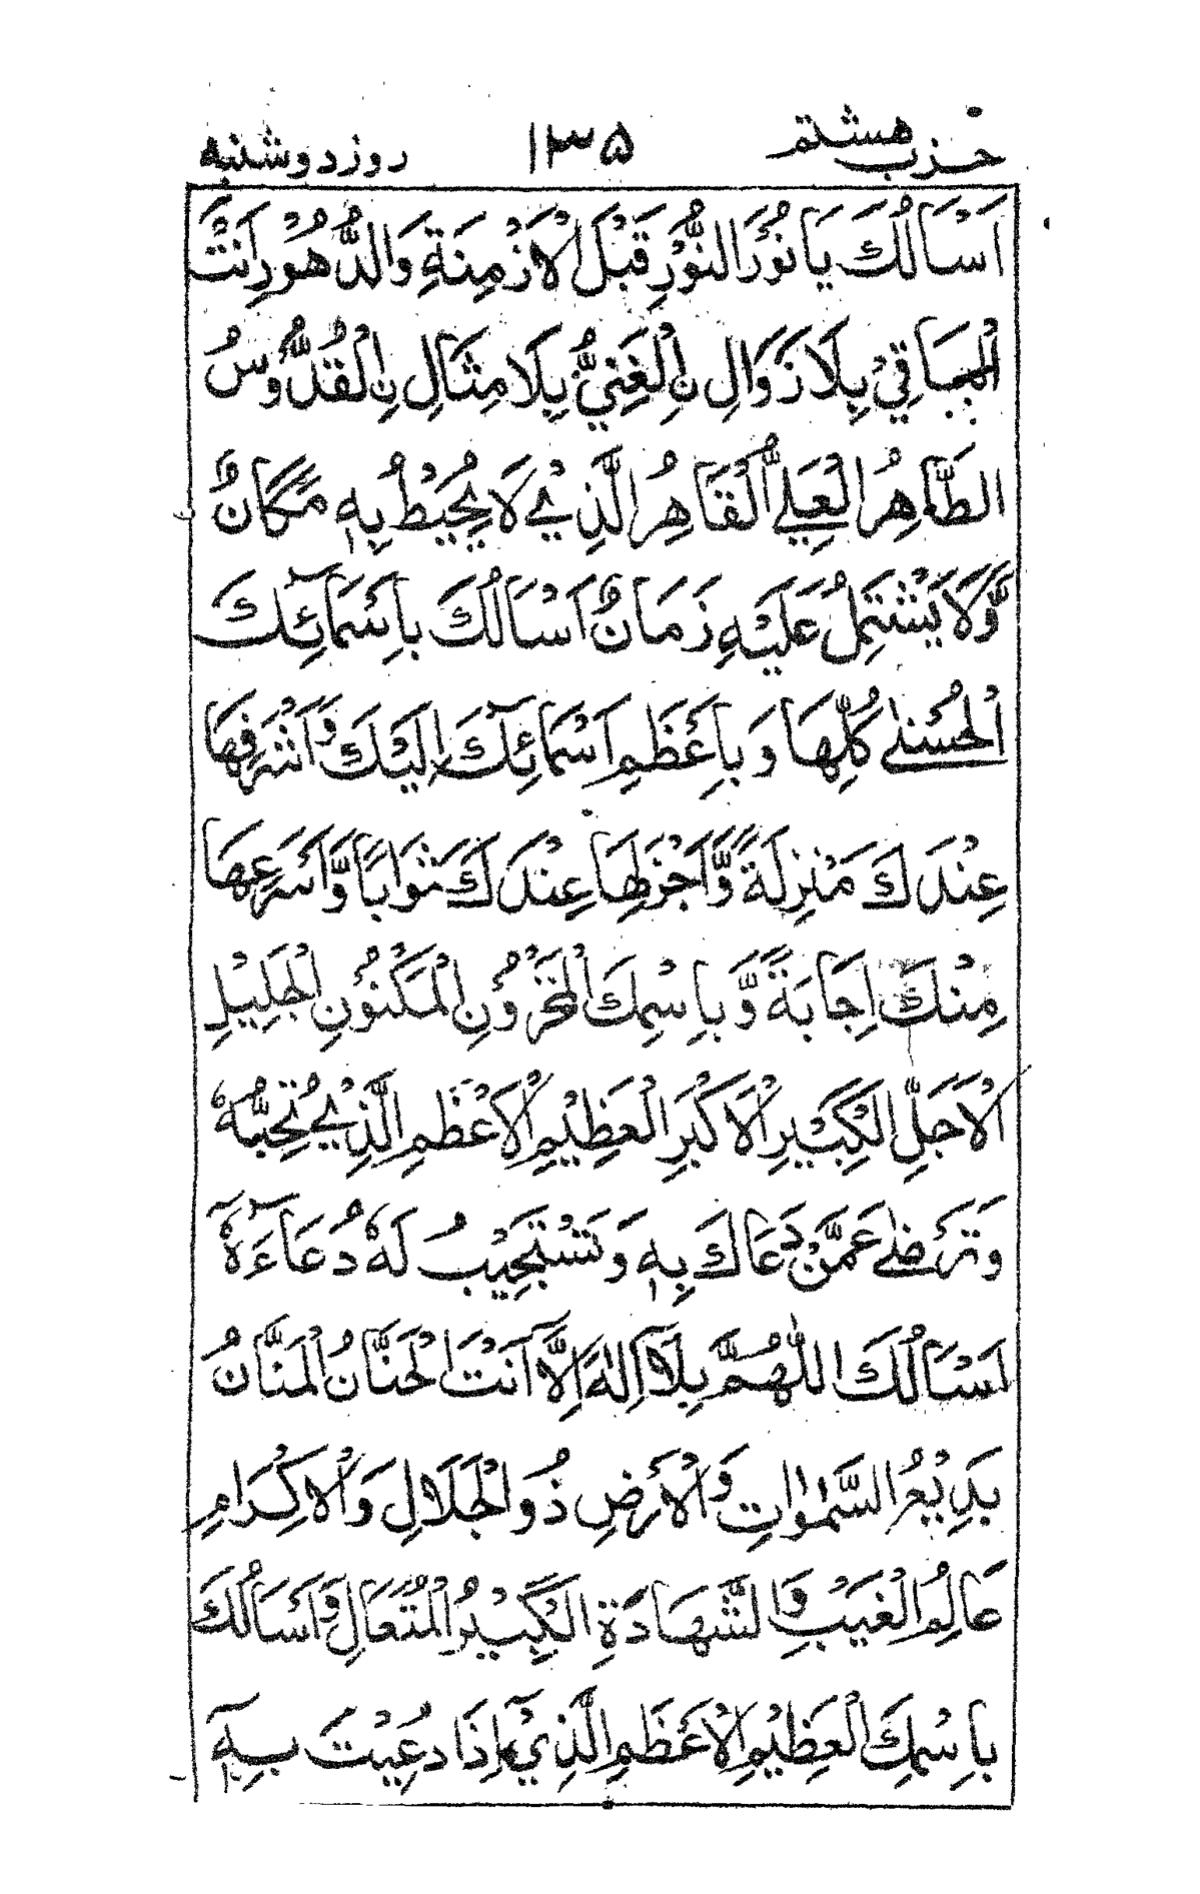 حزب هشتم ۱۳۵ روز دوشنبه
اَسْاَلُكَ يَا نُوْرَ النُّوْرِ قَبْلَ الْاَزْمِنَةِ وَالدُّهُوْرِ اَنْتَ
الْبَاقِيْ بِلَا زَوَالِ نِ الْغَنِيُّ بِلَا مِثَالِ نِ الْقُدُّوْسُ
الطَّاهِرُ الْعَلِيُّ الْقَاهِرُ الَّذِيْ لَا يُحِيْطُ بِهٖ مَكَانٌ
وَّلَا يَشْتَمِلُ عَلَيْهِ زَمَانٌ اَسْاَلُكَ بِاَسْمَآئِكَ
الْحُسْنٰى كُلِّهَا وَبِاَعْظَمِ اَسْمَآئِكَ اِلَيْكَ وَاَشْرَفِهَا
عِنْدَكَ مَنْزِلَةً وَّاَجْزَلِهَا عِنْدَكَ ثَوَابًا وَّاَسْرَعِهَا
مِنْكَ اِجَابَةً وَّبِاسْمِكَ الْمَخْزُوْنِ الْمَكْنُوْنِ الْجَلِيْلِ
الْاَجَلِّ الْكَبِيْرِ الْاَكْبَرِ الْعَظِيْمِ الْاَعْظَمِ الَّذِيْ تُحِبُّهٗ
وَتَرْضٰى عَمَّنْ دَعَاكَ بِهٖ وَتَسْتَجِيْبُ لَهٗ دُعَآءَهٗ
اَسْاَلُكَ اللّٰهُمَّ بِلَآ اِلٰهَ اِلَّآ اَنْتَ الْحَنَّانُ الْمَنَّانُ
بَدِيْعُ السَّمٰوٰتِ وَالْاَرْضِ ذُو الْجَلَالِ وَالْاِكْرَامِ
عَالِمُ الْغَيْبِ وَالشَّهَادَةِ الْكَبِيْرُ الْمُتَعَالِ وَاَسْاَلُكَ
بِاسْمِكَ الْعَظِيْمِ الْاَعْظَمِ الَّذِيْٓ اِذَا دُعِيْتَ بِهٖٓ